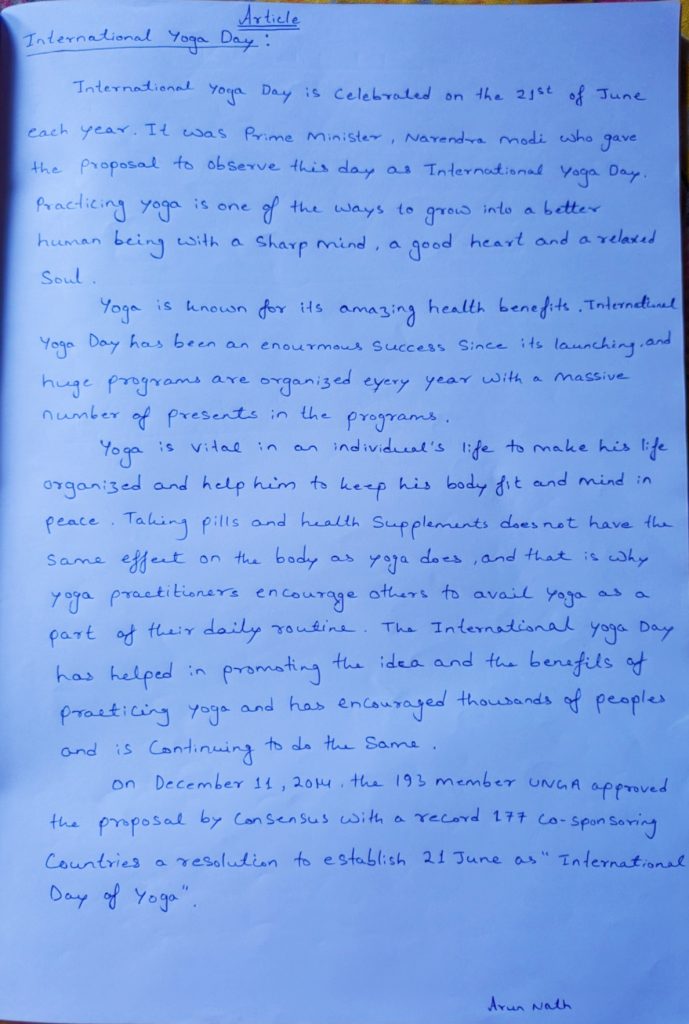 Article
International Yoga Day :
International Yoga Day is celebrated on the 21st of June
each year. It was Prime Minister, Narendra Modi who gave
the proposal to observe this day as International Yoga Day.
Practicing yoga is one of the ways to grow into a better
human being with a sharp mind, a good heart and a relaxed
Soul.
Yoga is known for its amazing health benefits. International
Yoga Day has been an enourmous success since its launching, and
huge programs are organized eyery year with a massive
number of presents in the programs.
Yoga is vital in an individual's life to make his life
organized and help him to keep his body fit and mind in
peace. Taking pills and health supplements does not have the
same effect on the body as yoga does, and that is why
yoga practitioners encourage others to avail yoga as a
part of their daily routine. The International Yoga Day
has helped in promoting the idea and the benefits of
practicing yoga and has encouraged thousands of peoples
and is continuing to do the same.
On December 11, 2014, the 193 member UNGA approved
the proposal by consensus with a record 177 co-sponsoring
countries a resolution to establish 21 June as "International
Day of Yoga".
Arun Nath